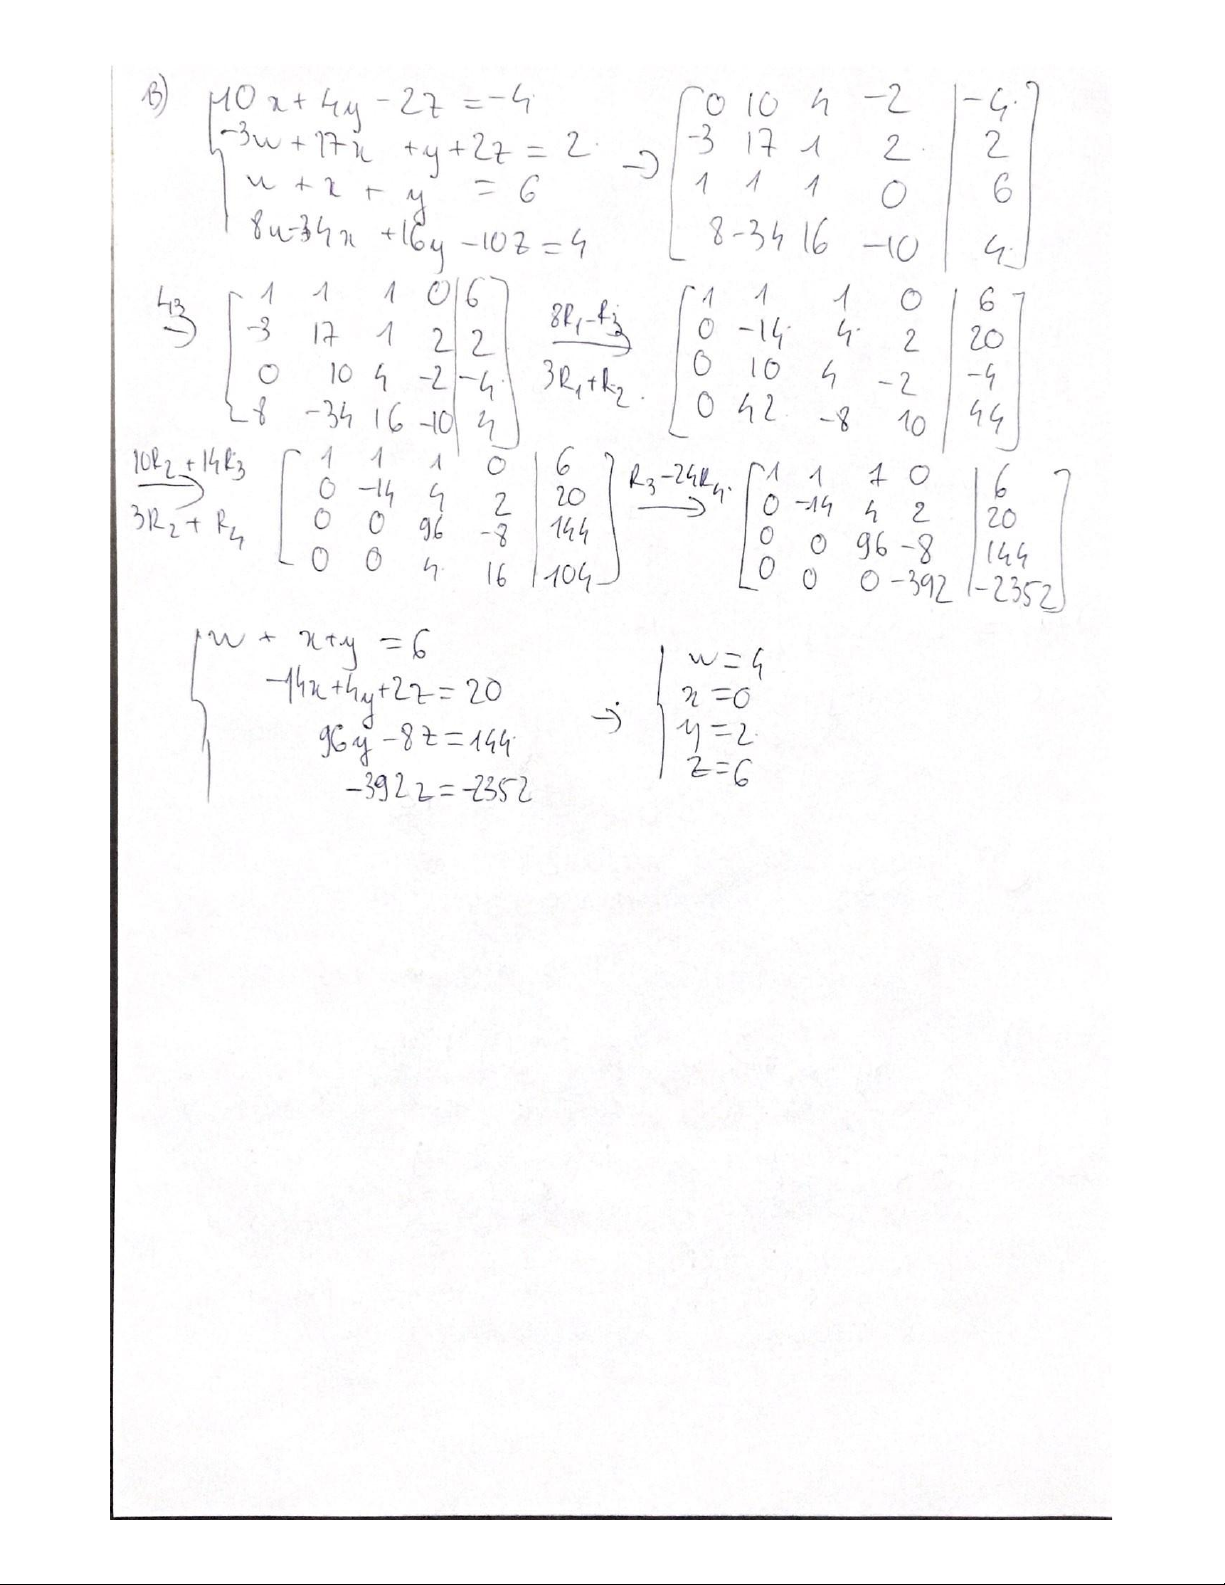 B) 10x + 4y - 2z = -4
-3w + 17x + y + 2z = 2
w + x + y = 6
8w - 34x + 16y - 10z = 4
→
0 10 4 -2 | -4
-3 17 1 2 | 2
1 1 1 0 | 6
8 -34 16 -10 | 4
→
1 1 1 0 | 6
-3 17 1 2 | 2
0 10 4 -2 | -4
8 -34 16 -10 | 4
8R1 - R3
3R1 + R2
→
1 1 1 0 | 6
0 -14 4 2 | 20
0 10 4 -2 | -4
0 42 -8 10 | 44
10R2 + 14R3
3R2 + R4
→
1 1 1 0 | 6
0 -14 4 2 | 20
0 0 96 -8 | 144
0 0 4 16 | 104
R3 - 24R4
→
1 1 1 0 | 6
0 -14 4 2 | 20
0 0 96 -8 | 144
0 0 0 -392 | -2352
w + x + y = 6
-14x + 4y + 2z = 20
96y - 8z = 144
-392z = -2352
→
w = 4
x = 0
y = 2
z = 6